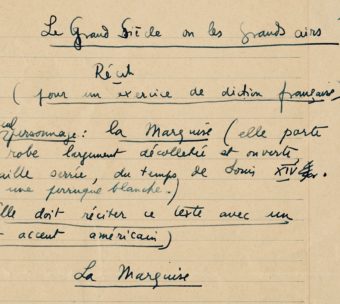 Le Grand Siècle ou les grands airs
Récit
(pour un exercice de diction française)
personnage : la Marquise (elle porte
robe largement décolletée et ouverte
aille serrée, du temps de Louis XIV
une perruque blanche.)
lle doit réciter ce texte avec un
accent américain)
La Marquise